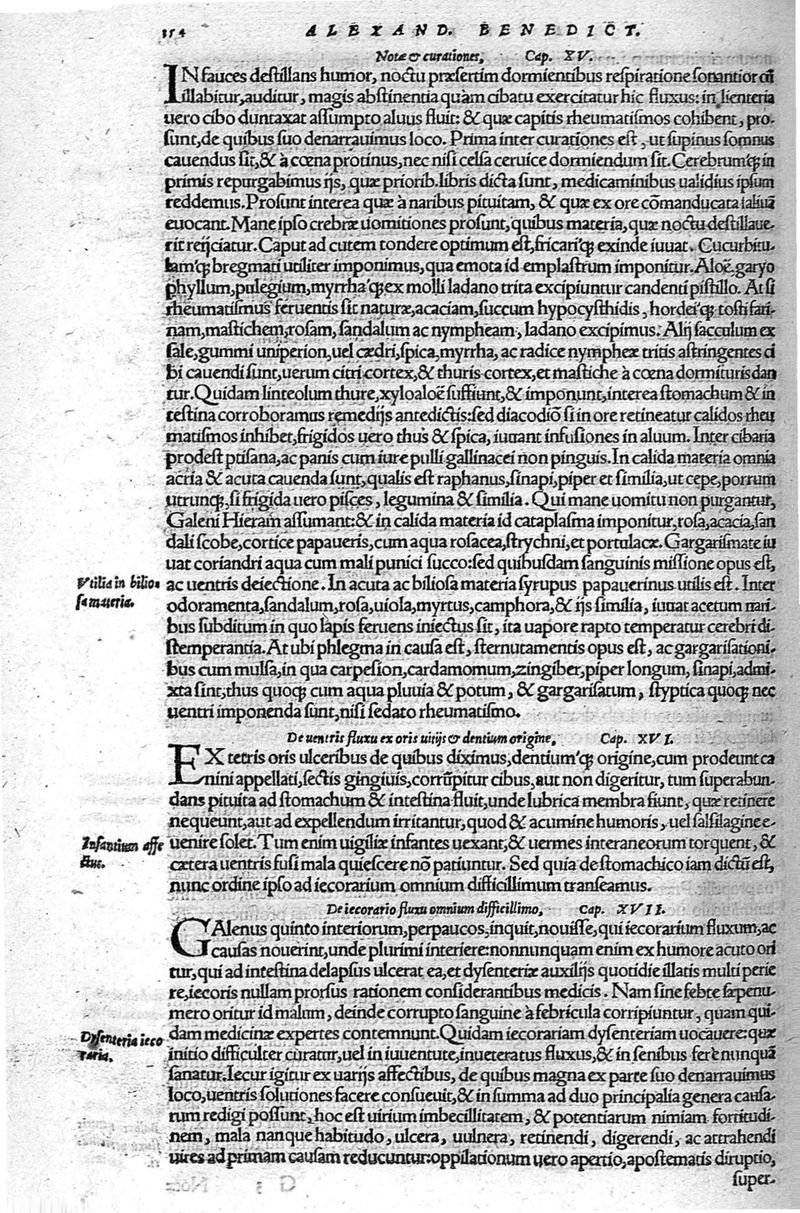 354 ALEXAND. BENEDICT.
Notæ & curationes, Cap. XV.
IN fauces destillans humor, noctu præsertim dormientibus respiratione sonantior cū
illabitur, auditur, magis abstinentia quàm cibatu exercitatur hic fluxus: in lienteria
uero cibo duntaxat assumpto aluus fluit: & quæ capitis rheumatismos cohibent, pro-
sunt, de quibus suo denarrauimus loco. Prima inter curationes est, ut supinus somnus
cauendus sit, & à cœna protinus, nec nisi celsa ceruice dormiendum sit. Cerebrumq́; in
primis repurgabimus ijs, quæ priorib. libris dicta sunt, medicaminibus ualidius ipsum
reddemus. Prosunt interea quæ à naribus pituitam, & quæ ex ore cōmanducata saliuā
euocant. Mane ipso crebræ uomitiones prosunt, quibus materia, quæ noctu destillaue-
rit reijciatur. Caput ad cutem tondere optimum est, fricariq́; exinde iuuat. Cucurbitu-
lamq́; bregmati utiliter imponimus, qua emota id emplastrum imponitur. Aloë, garyo
phyllum, pulegium, myrrhaq́; ex molli ladano trita excipiuntur candenti pistillo. At si
rheumatismus feruentis sit naturæ, acaciam, succum hypocysthidis, hordeiq́; tosti fari-
nam, mastichem, rosam, sandalum ac nympheam, ladano excipimus. Alij sacculum ex
sale, gummi uniperion, uel cædri, spica, myrrha, ac radice nympheæ tritis astringentes ci
bi cauendi sunt, uerum citri cortex, & thuris cortex, et mastiche à cœna dormituris dan
tur. Quidam linteolum thure, xyloaloë suffiunt, & imponunt, interea stomachum & in
testina corroboramus remedijs antedictis: sed diacodiō si in ore retineatur calidos rheu
matismos inhibet, frigidos uero thus & spica, iuuant infusiones in aluum. Inter cibaria
prodest ptisana, ac panis cum iure pulli gallinacei non pinguis. In calida materia omnia
acria & acuta cauenda sunt, qualis est raphanus, sinapi, piper et similia, ut cepe, porrum
utrunq;, si frigida uero pisces, legumina & similia. Qui mane uomitu non purgantur,
Galeni Hieram assumant: & in calida materia id cataplasma imponitur, rosa, acacia, san
dali scobe, cortice papaueris, cum aqua rosacea, strychni, et portulacæ. Gargarismate iu
uat coriandri aqua cum mali punici succo: sed quibusdam sanguinis missione opus est,
Vtilia in bilio-
sa materia.
ac uentris deiectione. In acuta ac biliosa materia syrupus papauerinus utilis est. Inter
odoramenta, sandalum, rosa, uiola, myrtus, camphora, & ijs similia, iuuat acetum nari-
bus subditum in quo lapis feruens iniectus sit, ita uapore rapto temperatur cerebri di-
stemperantia. At ubi phlegma in causa est, sternutamentis opus est, ac gargarisationi-
bus cum mulsa, in qua carpesion, cardamomum, zingiber, piper longum, sinapi, admi-
xta sint, thus quoq; cum aqua pluuia & potum, & gargarisatum, styptica quoq; nec
uentri imponenda sunt, nisi sedato rheumatismo.
De uentris fluxu ex oris uitijs & dentium origine, Cap. XVI.
EX tetris oris ulceribus de quibus diximus, dentiumq́; origine, cum prodeunt ca
nini appellati, sectis gingiuis, corrūpitur cibus, aut non digeritur, tum superabun-
dans pituita ad stomachum & intestina fluit, unde lubrica membra fiunt, quæ retinere
nequeunt, aut ad expellendum irritantur, quod & acumine humoris, uel salsilagine e-
Infantium affe
ctus.
uenire solet. Tum enim uigiliæ infantes uexant, & uermes interaneorum torquent, &
cætera uentris fusi mala quiescere nō patiuntur. Sed quia de stomachico iam dictū est,
nunc ordine ipso ad iecorarium omnium difficillimum transeamus.
De iecorario fluxu omnium difficillimo, Cap. XVII.
GAlenus quinto interiorum, perpaucos, inquit, nouisse, qui iecorarium fluxum, ac
causas nouerint, unde plurimi interiere: nonnunquam enim ex humore acuto ori
tur, qui ad intestina delapsus ulcerat ea, et dysenteriæ auxilijs quotidie illatis multi perie
re, iecoris nullam prorsus rationem considerantibus medicis. Nam sine febre sæpenu-
mero oritur id malum, deinde corrupto sanguine à febricula corripiuntur, quam qui-
Dysenteria ieco
raria.
dam medicinæ expertes contemnunt. Quidam iecorariam dysenteriam uocauere: quæ
initio difficulter curatur, uel in iuuentute, inueteratus fluxus, & in senibus ferè nunquā
sanatur. Iecur igitur ex uarijs affectibus, de quibus magna ex parte suo denarrauimus
loco, uentris solutiones facere consueuit, & in summa ad duo principalia genera causa-
rum redigi possunt, hoc est uirium imbecillitatem, & potentiarum nimiam fortitudi-
nem, mala nanque habitudo, ulcera, uulnera, retinendi, digerendi, ac attrahendi
uires ad primam causam reducuntur: oppilationum uero apertio, apostematis diruptio,
super-